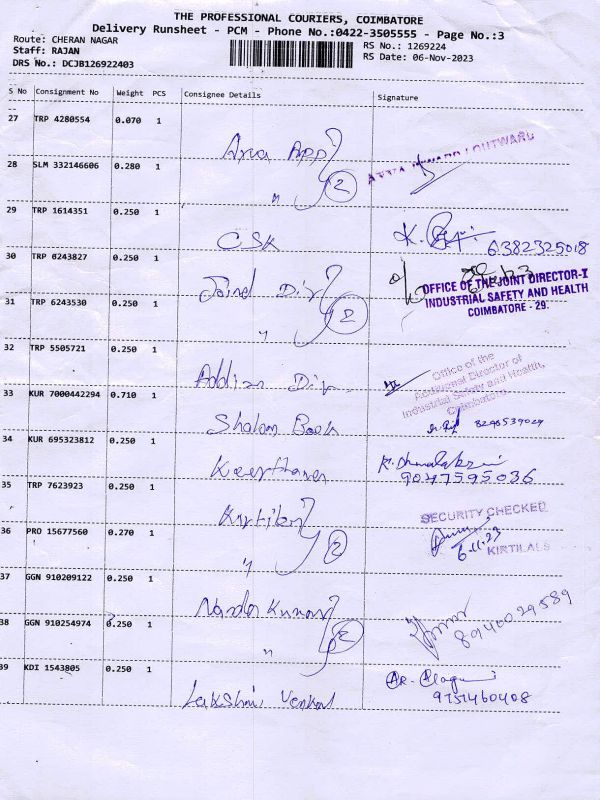 THE PROFESSIONAL COURIERS, COIMBATORE
Delivery Runsheet - PCM - Phone No.:0422-3505555 - Page No.:3
Route: CHERAN NAGAR
RS No.: 1269224
Staff: RAJAN
RS Date: 06-Nov-2023
DRS No.: DCJB126922403
S No Consignment No Weight PCS Consignee Details Signature
27 TRP 4280554 0.070 1
OUTWARD
28 SLM 332146606 0.280 1
" 2
29 TRP 1614351 0.250 1
CSK K. 6382325018
30 TRP 6243827 0.250 1
Joind Dir
OFFICE OF THE JOINT DIRECTOR-I
INDUSTRIAL SAFETY AND HEALTH
COIMBATORE - 29.
31 TRP 6243530 0.250 1
" 2
32 TRP 5505721 0.250 1
Dir
Office of the
Additional Director of
Industrial Safety and Health,
Coimbatore
33 KUR 7000442294 0.710 1
Shalom Book
34 KUR 695323812 0.250 1
Keerthana
9047595036
35 TRP 7623923 0.250 1
Kirtilal
SECURITY CHECKED
6.11.23
KIRTILALS
36 PRO 15677560 0.270 1
" 2
37 GGN 910209122 0.250 1
Nanda Kumar
8940029589
38 GGN 910254974 0.250 1
" 2
39 KDI 1543805 0.250 1
Lakshmi Venkat
9751460408